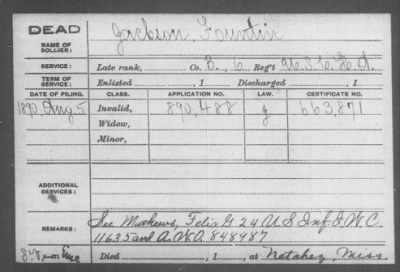 DEAD
NAME OF SOLDIER: Jackson, Fountin
SERVICE: Late rank, Co. B, 6 Reg't U.S.C.H.A.
TERM OF SERVICE: Enlisted , 1 Discharged , 1
DATE OF FILING. CLASS. APPLICATION NO. LAW. CERTIFICATE NO.
1890 Aug. 5 Invalid, 890,488 g 663,871
Widow,
Minor,
ADDITIONAL SERVICES:
REMARKS: See Mathews, Felix G 24 U S Inf I.W.C.
11635 and A.W.O. 848987
Died , 1 , at Natchez, Miss.